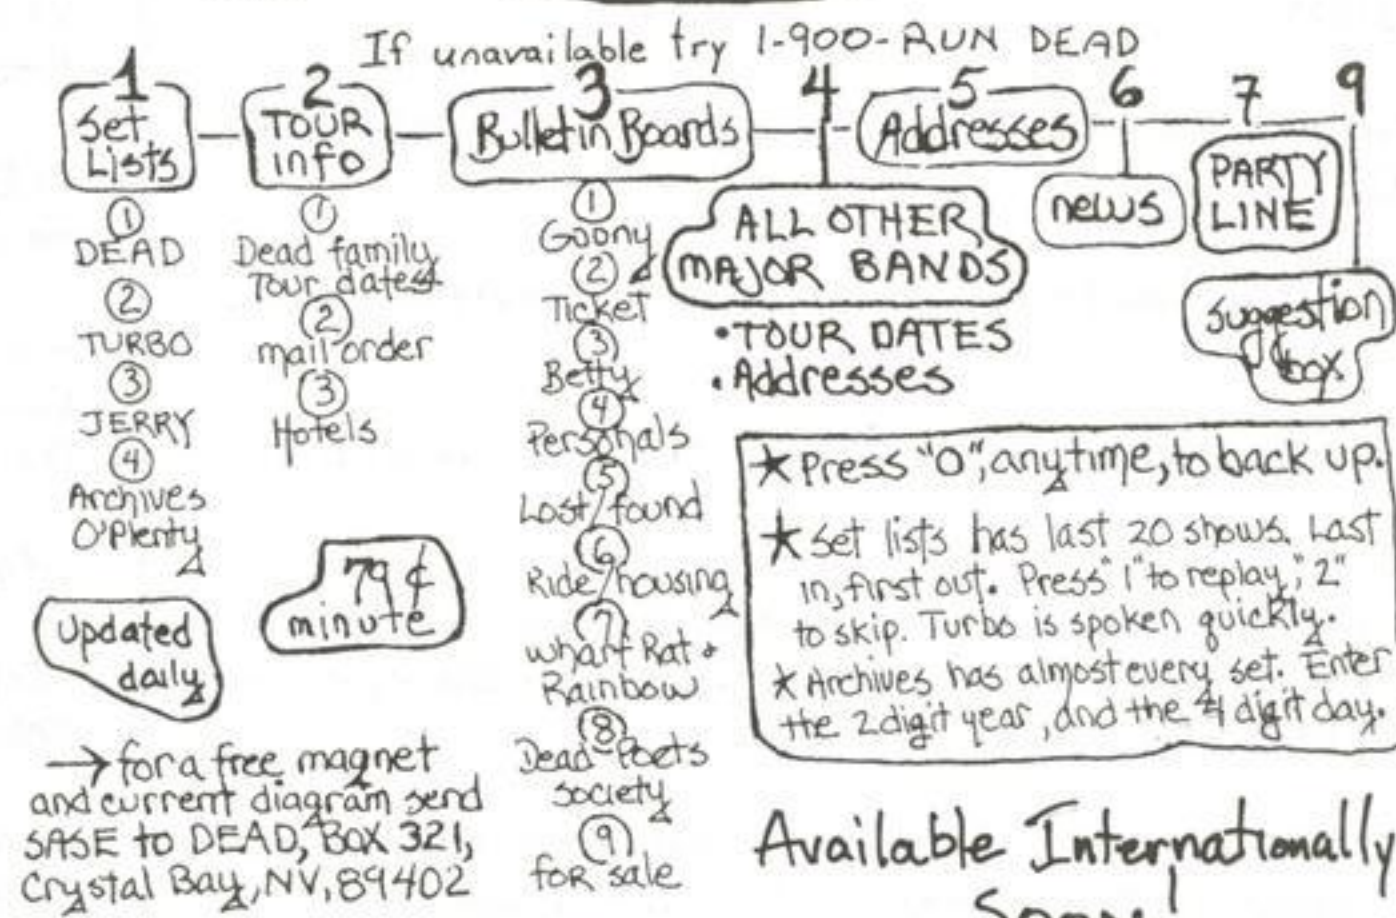 If unavailable try 1-900-RUN DEAD
1
Set
Lists
①
DEAD
②
TURBO
③
JERRY
④
Archives
O'Plenty
2
TOUR
info
①
Dead family
Tour dates
②
mail order
③
Hotels
3
Bulletin Boards
①
Goony
②
Ticket
③
Betty
④
Personals
⑤
Lost/found
⑥
Ride/housing
⑦
Wharf Rat &
Rainbow
⑧
Dead Poets
society
⑨
for sale
4
ALL OTHER
MAJOR BANDS
• TOUR DATES
• Addresses
5
Addresses
6
news
7
PARTY
LINE
9
Suggestion
box
79 ¢
minute
Updated
daily
★ Press "0", anytime, to back up.
★ Set lists has last 20 shows. Last
in, first out. Press "1" to replay, "2"
to skip. Turbo is spoken quickly.
★ Archives has almost every set. Enter
the 2 digit year, and the 4 digit day.
→ for a free magnet
and current diagram send
SASE to DEAD, BOX 321,
Crystal Bay, NV, 89402
Available Internationally
Soon!